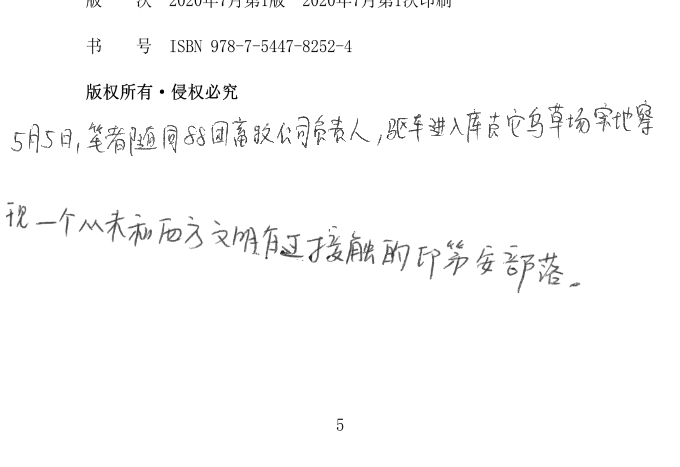 版 次 2020年7月第1版 2020年7月第1次印刷
书 号 ISBN 978-7-5447-8252-4
版权所有·侵权必究
5月5日,笔者随同88团畜牧公司负责人,驱车进入库克它乌草场实地察
现一个从未和西方文明有过接触的印第安部落。
5